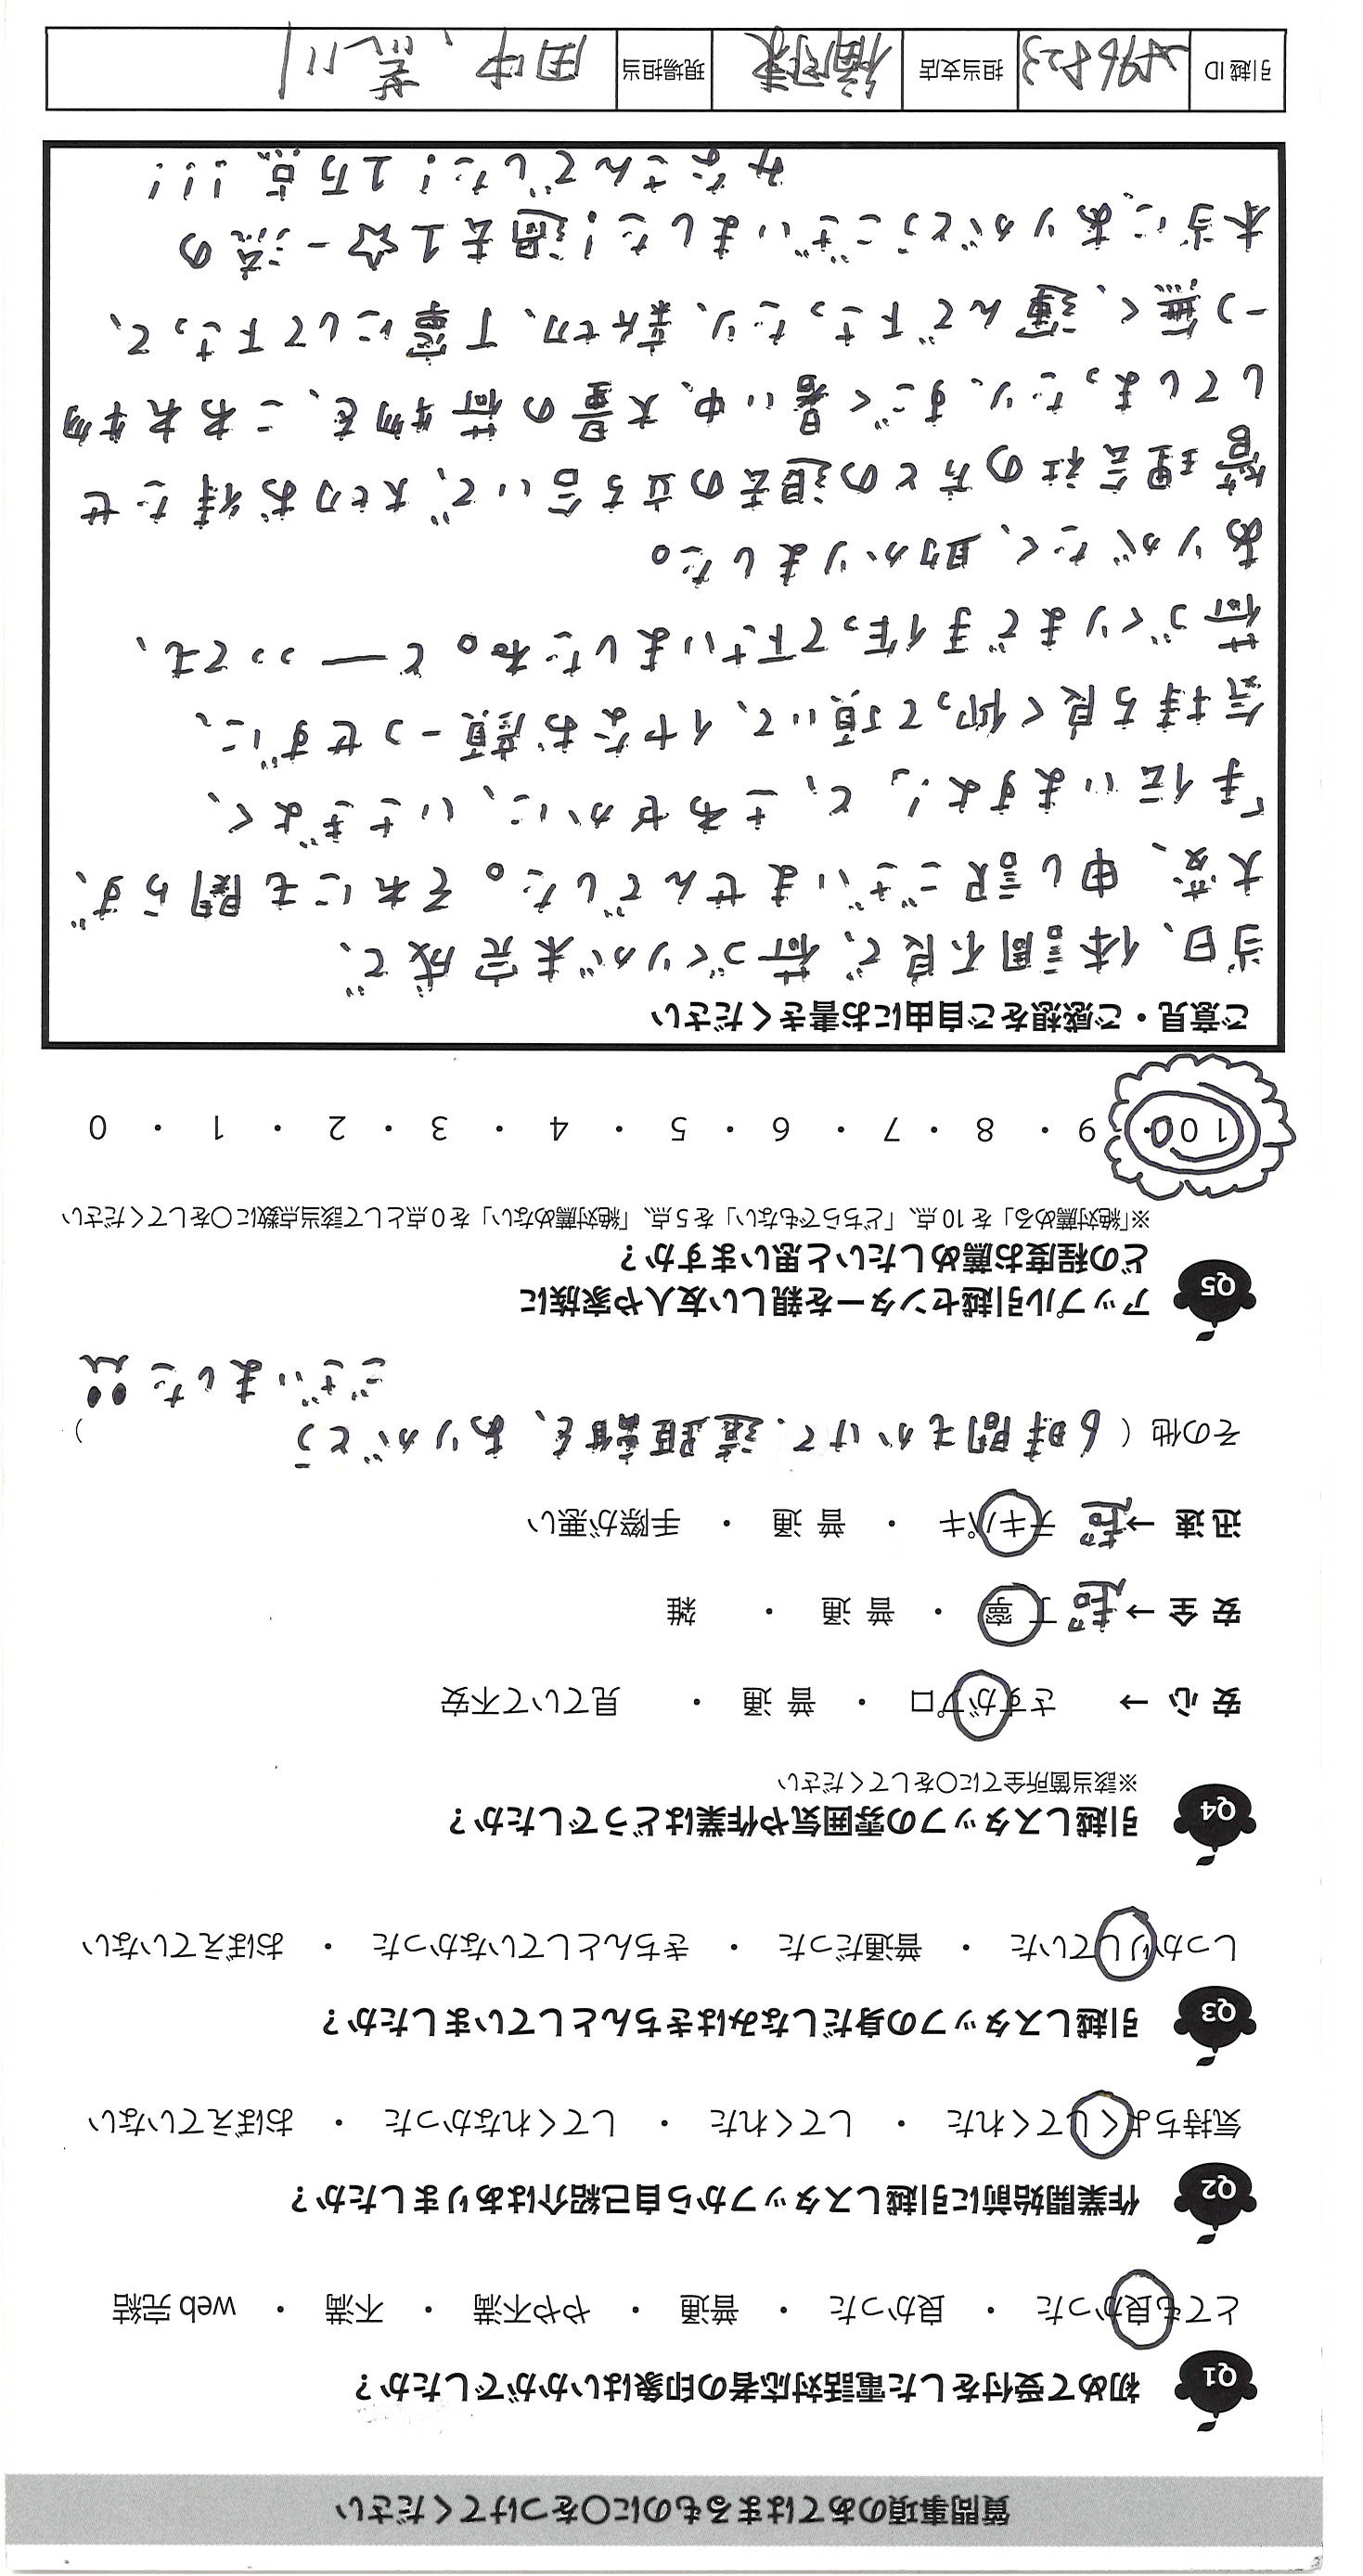 質問事項のあてはまるものに○をつけてください
Q1 初めて受付をした電話対応者の印象はいかがでしたか？
とても良かった ・ 良かった ・ 普通 ・ やや不満 ・ 不満 ・ web 完結
Q2 作業開始前に引越しスタッフから自己紹介はありましたか？
気持ちよくしてくれた ・ してくれた ・ してくれなかった ・ おぼえていない
Q3 引越しスタッフの身だしなみはきちんとしていましたか？
しっかりしていた ・ 普通だった ・ きちんとしていなかった ・ おぼえていない
Q4 引越しスタッフの雰囲気や作業はどうでしたか？
※該当箇所全てに○をしてください
安 心 → さすがプロ ・ 普 通 ・ 見ていて不安
安 全 → 超 丁 寧 ・ 普 通 ・ 雑
迅 速 → 超 テキパキ ・ 普 通 ・ 手際が悪い
その他（ 6時間もかけて、遠距離を、ありがとう
ございました!! ）
Q5 アップル引越センターを親しい友人や家族に
どの程度お薦めしたいと思いますか？
※「絶対薦める」を 10 点、「どちらでもない」を 5 点、「絶対薦めない」を 0 点として該当点数に○をしてください
100 ・ 9 ・ 8 ・ 7 ・ 6 ・ 5 ・ 4 ・ 3 ・ 2 ・ 1 ・ 0
ご意見・ご感想をご自由にお書きください
当日、体調不良で、荷づくりが未完成で、
大変、申し訳ございませんでした。それにも関らず、
「手伝いますよ!」と、さわやかに、いさぎよく、
気持ち良く仰って頂いて、イヤなお顔一つせずに、
荷づくりまで手伝って下さいましたね。と──っっても、
ありがたく、助かりました。
管理会社の方との退去の立ち合いで、大切お待たせ
してしまったり、すごく暑い中、大量の荷物を、こわれ物
一つ無く、運んで下さったり、親切、丁寧にして下さって、
本当に、ありがとうございました!過去1☆一流の
みなさんでした!1万点!!!
引越 ID 496823 担当支店 福岡東 現場担当 田中、荒川